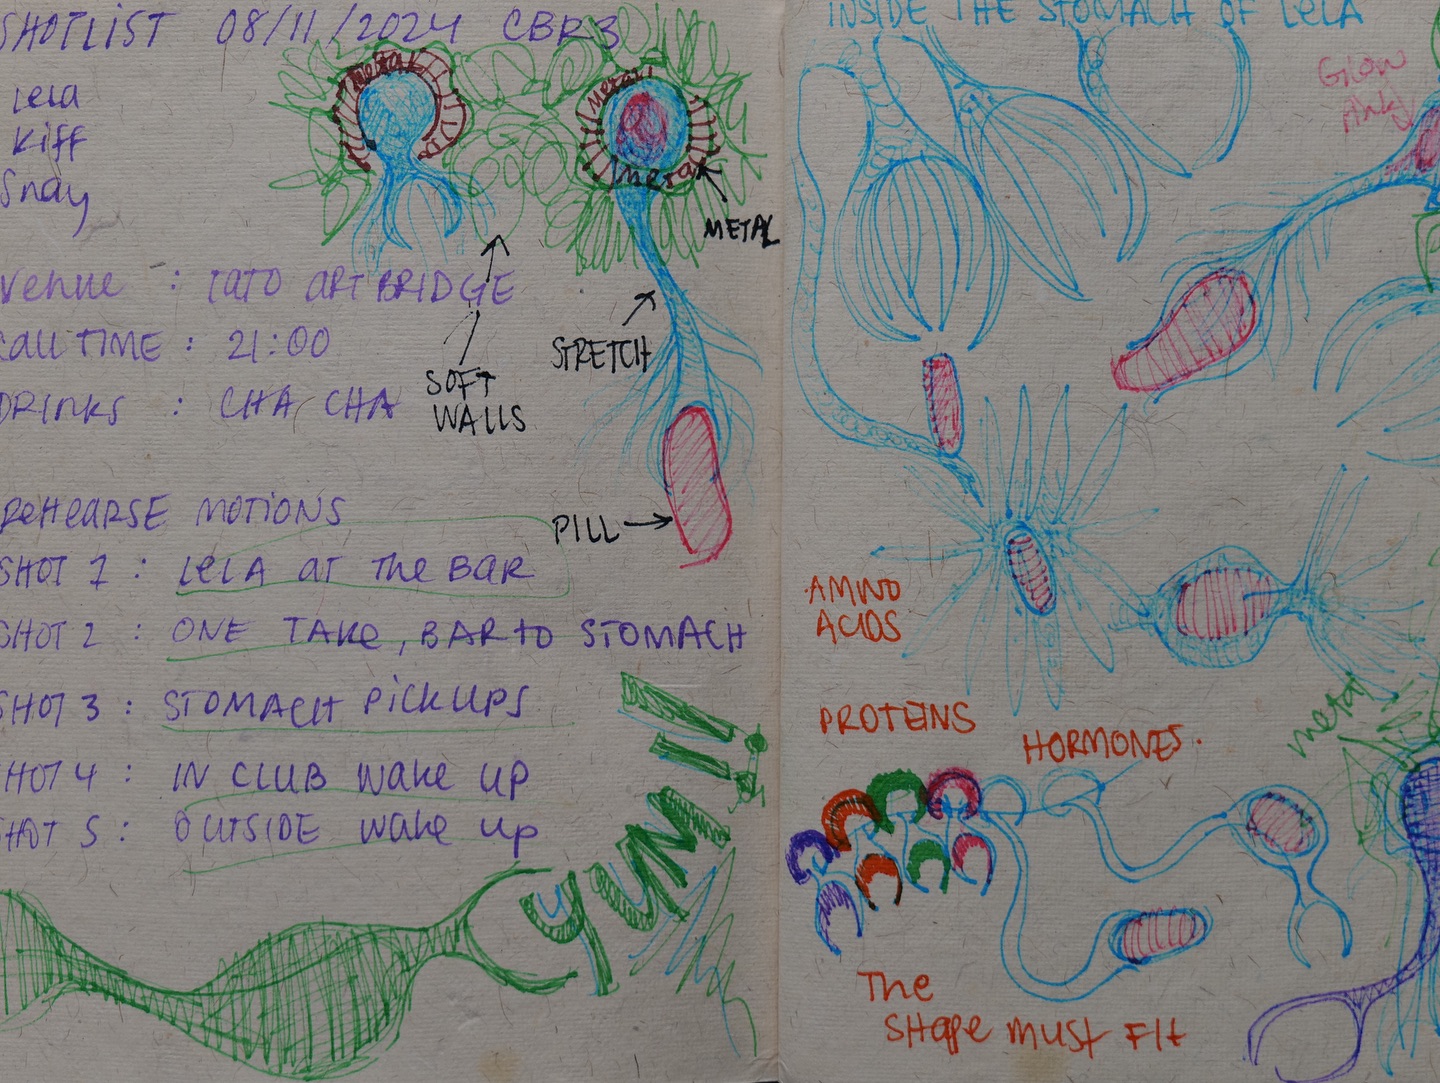 SHOTLIST 08/11/2024 CBR3
Lela
Kiff
Snay
Venue : TATO ART BRIDGE
CALL TIME : 21:00
DRINKS : CHA CHA
REHEARSE MOTIONS
SHOT 1 : LELA AT THE BAR
SHOT 2 : ONE TAKE, BAR TO STOMACH
SHOT 3 : STOMACH PICKUPS
SHOT 4 : IN CLUB WAKE UP
SHOT 5 : OUTSIDE WAKE UP
metal
metal
metal
METAL
SOFT
WALLS
STRETCH
PILL
YUM!!
INSIDE THE STOMACH OF LELA
Glow
AMINO
ACIDS
PROTEINS
HORMONES.
metal
The
shape must fit